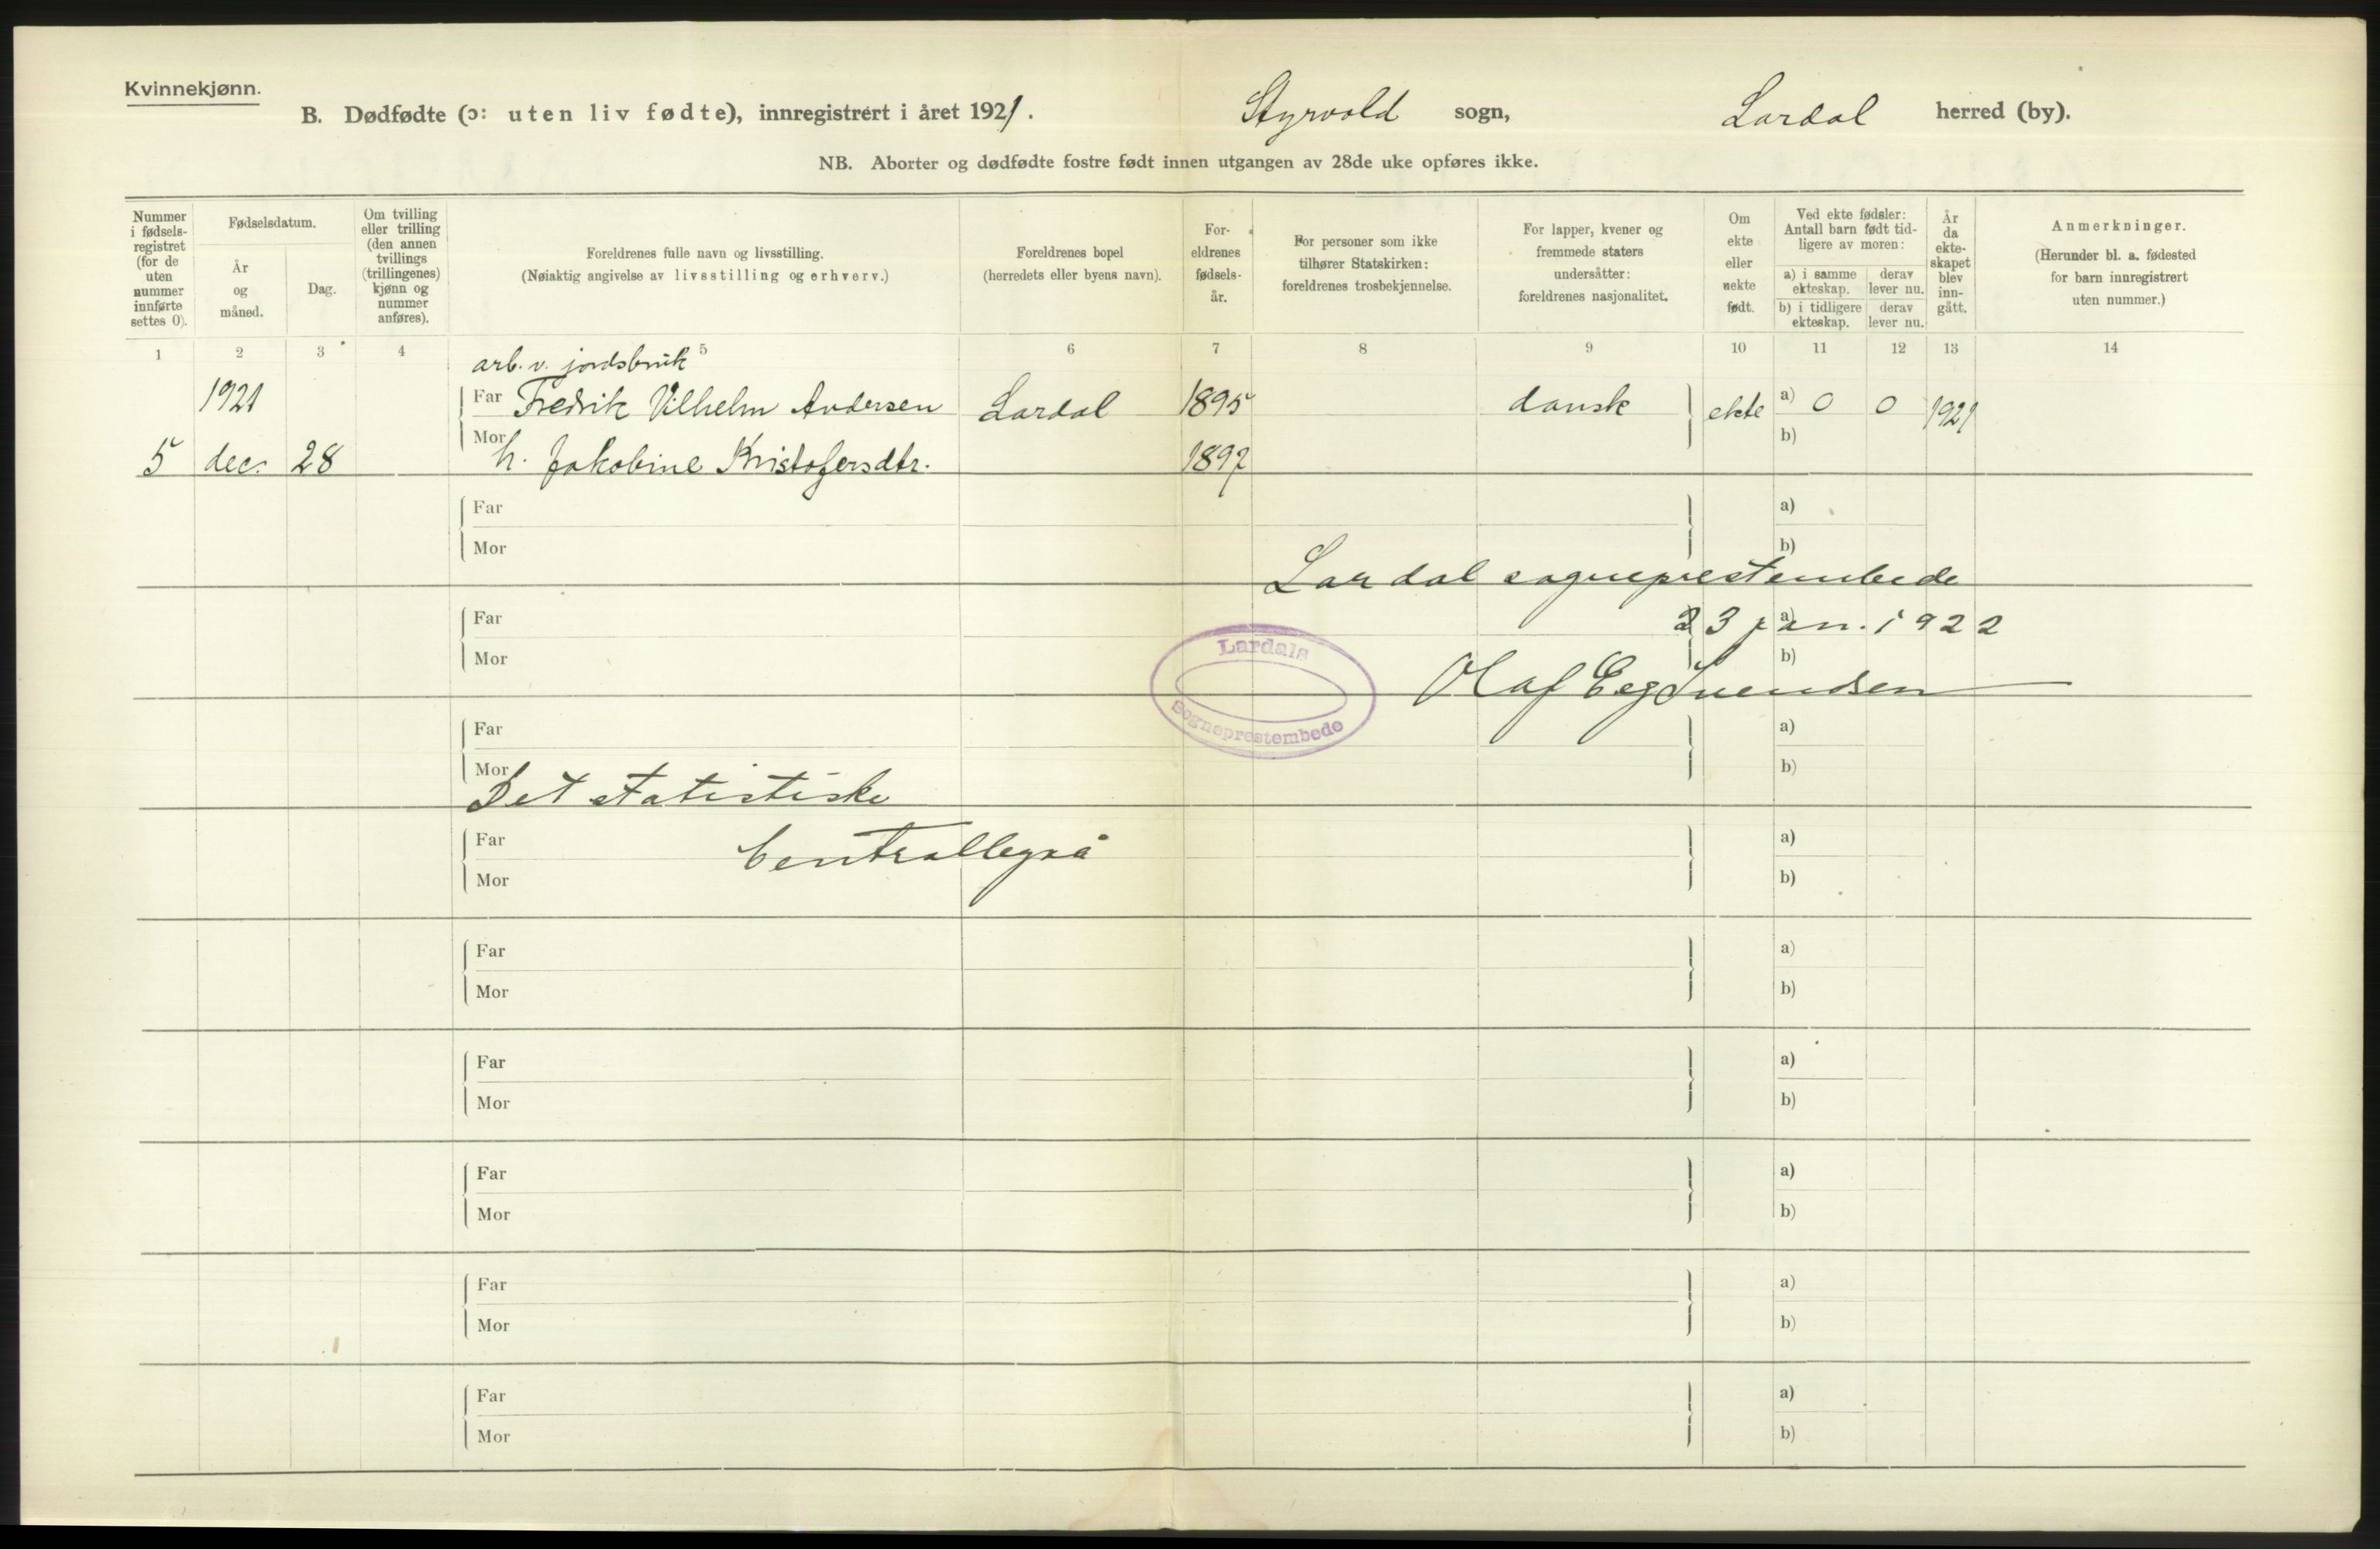 Kvinnekjønn.
B. Dødfødte (ɔ: uten liv fødte), innregistrert i året 1921. Styrvold sogn, Lardal herred (by).
NB. Aborter og dødfødte fostre født innen utgangen av 28de uke opføres ikke.
Nummer i fødselsregistret (for de uten nummer innførte settes 0).
Fødselsdatum.
År og måned.
Dag.
Om tvilling eller trilling (den annen tvillings (trillingenes) kjønn og nummer anføres).
Foreldrenes fulle navn og livsstilling.
(Nøiaktig angivelse av livsstilling og erhverv.)
Foreldrenes bopel
(herredets eller byens navn).
Foreldrenes fødselsår.
For personer som ikke tilhører Statskirken: foreldrenes trosbekjennelse.
For lapper, kvener og fremmede staters undersåtter: foreldrenes nasjonalitet.
Om ekte eller uekte født.
Ved ekte fødsler: Antall barn født tidligere av moren:
a) i samme ekteskap. derav lever nu.
b) i tidligere ekteskap. derav lever nu.
År da ekteskapet blev inngått.
Anmerkninger.
(Herunder bl. a. fødested for barn innregistrert uten nummer.)
1 2 3 4 5 6 7 8 9 10 11 12 13 14
arb. v. jordsbruk
1921 Far Fredrik Vilhelm Andersen Lardal 1895 dansk ekte a) 0 0 1921
5 dec. 28 Mor h. Jakobine Kristofersdtr. 1897 b)
Far a)
Mor b)
Lardal sogneprestembede
Far 23 jan. 1922 a)
Mor b)
Lardals Sogneprestembede
Olaf Eeg Svendsen
Far a)
Mor b)
Det statistiske
Far Centrallbyrå a)
Mor b)
Far a)
Mor b)
Far a)
Mor b)
Far a)
Mor b)
Far a)
Mor b)
Far a)
Mor b)